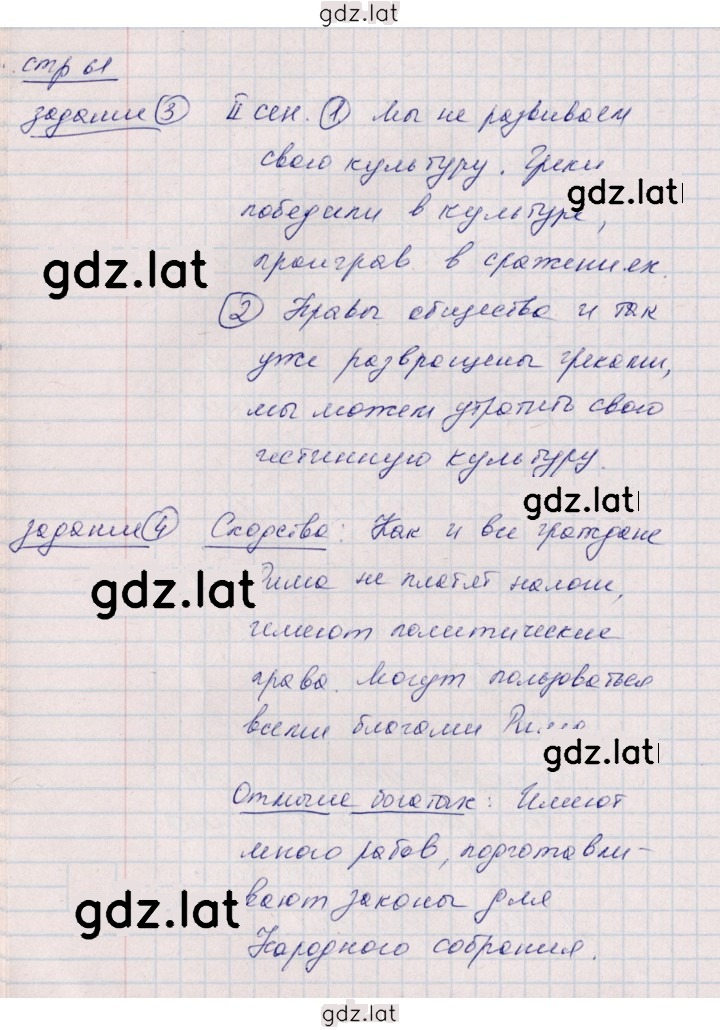 gdz.lat
стр 61
задание 3 II сен. 1 Мы не развиваем
свою культуру. Греки
gdz.lat
победили в культуре,
gdz.lat
проиграв в сражениях.
2 Нравы общества и так
уже развращены греками,
мы можем утратить свою
истинную культуру.
gdz.lat
задание 4 Сходства: Как и все граждане
gdz.lat
Рима не платят налоги,
имеют политические
права. Могут пользоваться
всеми благами Рима
gdz.lat
Отличие богатых: Имеют
много рабов, подготавли-
gdz.lat
вают законы для
Народного собрания.
gdz.lat